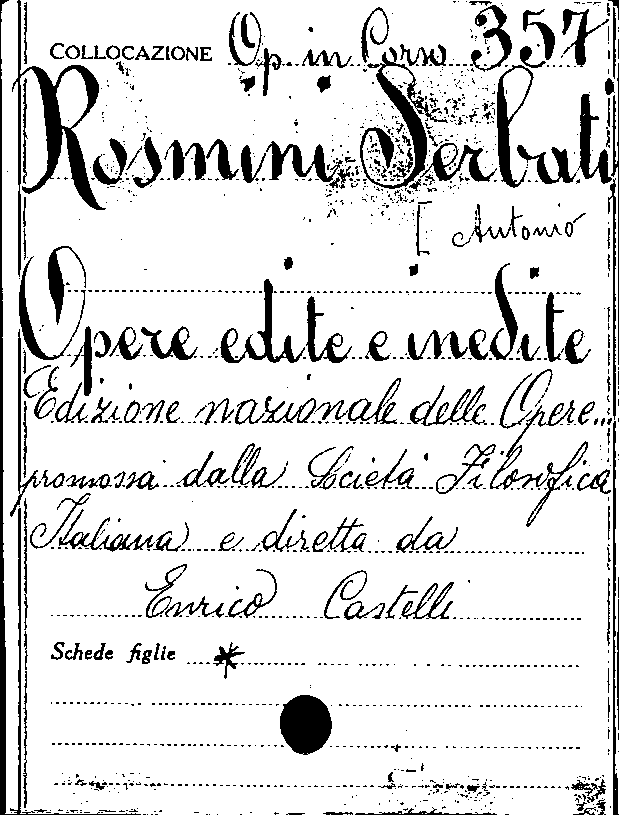 COLLOCAZIONE Op. in Corso 357
Rosmini Serbati,
[Antonio
Opere edite e inedite
Edizione nazionale delle Opere...
promossa dalla Società Filosofica
Italiana e diretta da
Enrico Castelli
Schede figlie *